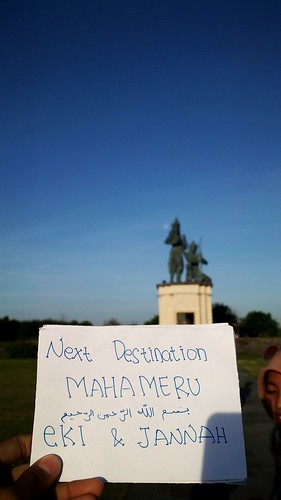 Next Destination
MAHAMERU
بسم الله الرّحمن الرّحيم
eKI & JANNAH